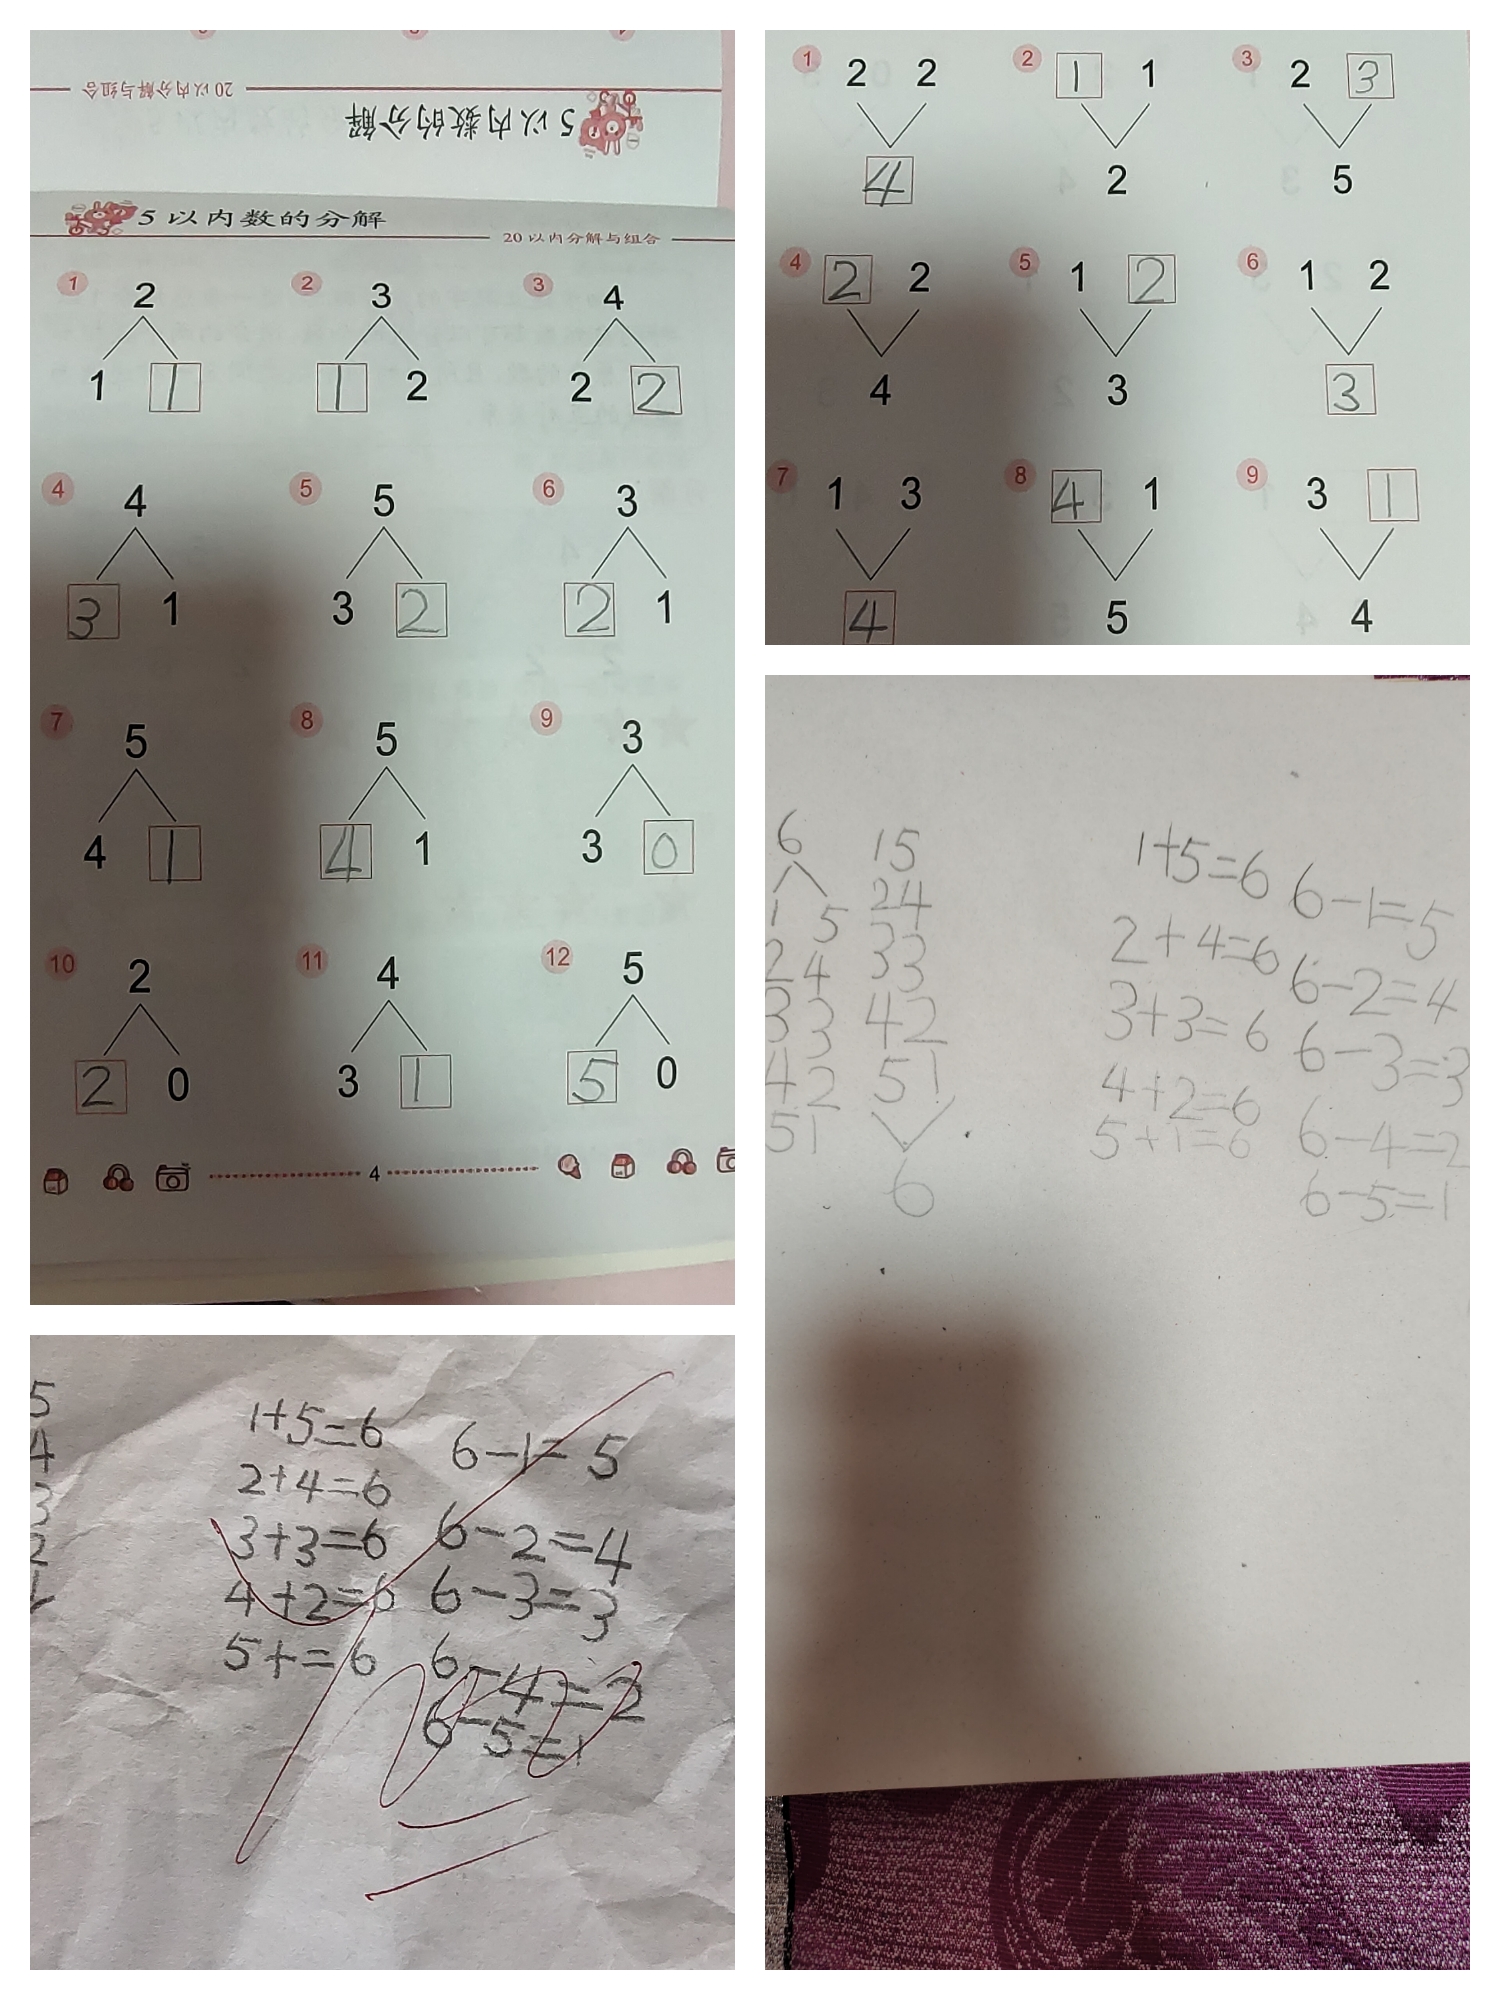 20以内分解与组合
5以内数的分解
5以内数的分解
20以内分解与组合
1 2 3
2 3 4
1 1 1 2 2 2
4 5 6
4 5 3
3 1 3 2 2 1
7 8 9
5 5 3
4 1 4 1 3 0
10 11 12
2 4 5
2 0 3 1 5 0
4
1 2 2 2 1 1 3 2 3
4 2 5
4 2 2 5 1 2 6 1 2
4 3 3
7 1 3 8 4 1 9 3 1
4 5 4
6 15
1 5 24
2 4 33
3 3 42
4 2 51
5 1 6
1+5=6 6-1=5
2+4=6 6-2=4
3+3=6 6-3=3
4+2=6 6-4=2
5+1=6 6-5=1
5
4
3
2
1
1+5=6 6-1=5
2+4=6 6-2=4
3+3=6 6-3=3
4+2=6 6-4=2
5+=6 6-5=1